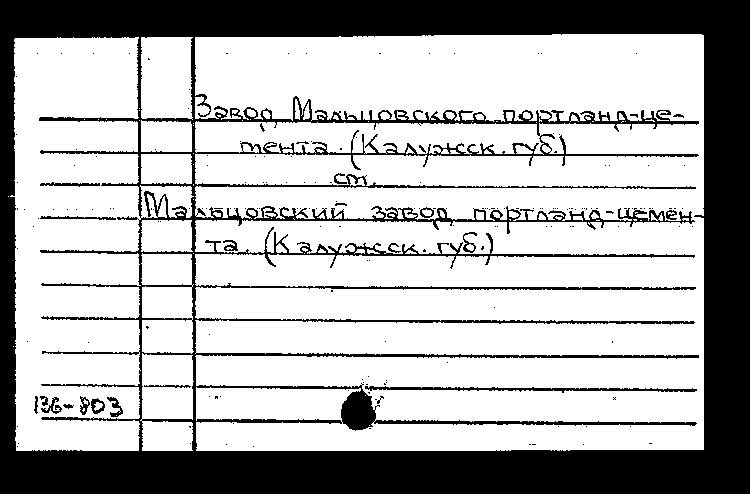 Завод Мальцовского портланд-це-
мента. (Калужск. губ.)
см.
Мальцовский завод портланд-цемен-
та. (Калужск. губ.)
136-803